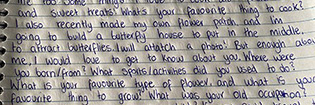 me too some things
and sweet treats! What's your favourite thing to cook?
I also recently made my own flower patch and I'm
going to build a butterfly house to put in the middle,
to attract butterflies. I will attatch a photo! But enough about
me, I would love to get to know about you. Where were
you born/from? What sports/activities did you used to do?
What is your favourite type of flower, and what is your
favourite thing to grow? What was your old occupation?